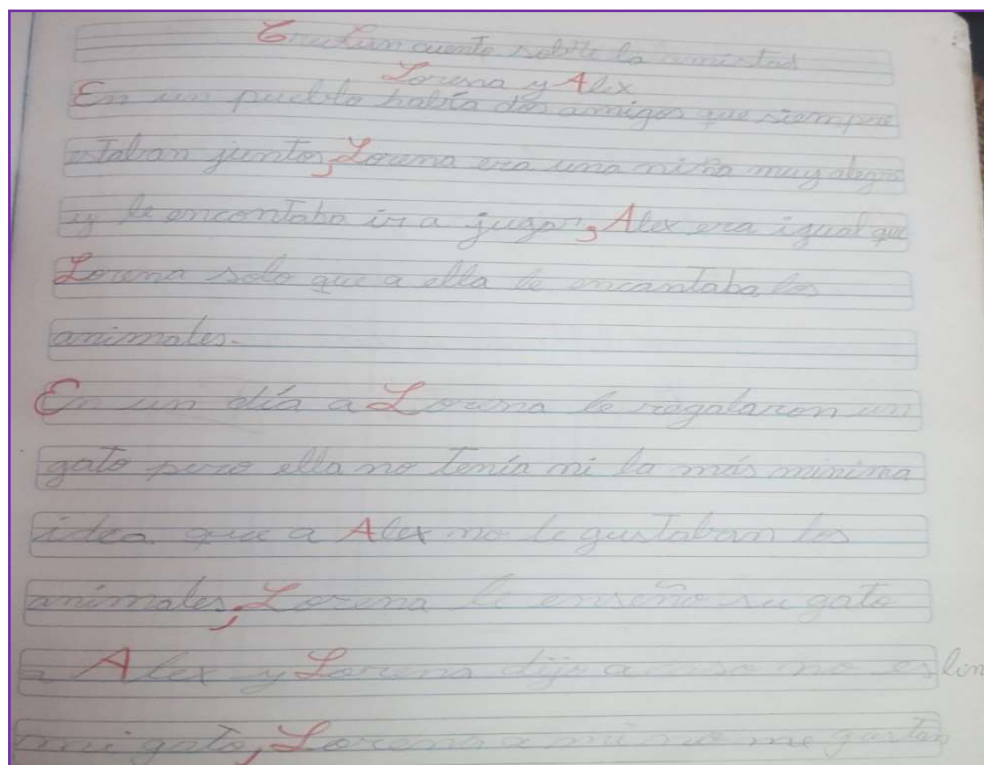 cuento sobre la amistad
Lorena y Alex
En un pueblo había dos amigos que siempre
estaban juntos, Lorena era una niña muy alegre
y le encontaba ir a jugar, Alex era igual que
Lorena solo que a ella le encantaba los
animales.
En un día a Lorena le regalaron un
gato pero ella no tenía ni la más minima
idea que a Alex no le gustaban los
animales, Lorena le enseño su gato
a Alex y Lorena dijo acaso no es lin
mi gato, Lorena a mi no me gustan